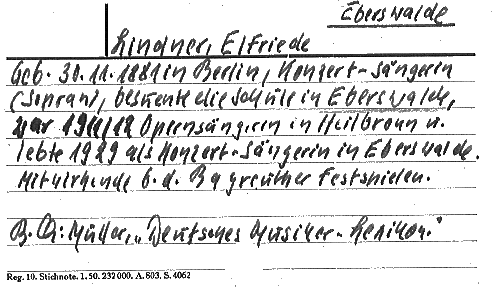 Eberswalde
Lindner, Elfriede
Geb. 30.11.1881 in Berlin, Konzert-Sängerin
(Sopran), besuchte die Schule in Eberswalde,
war 1911/12 Opernsängerin in Heilbronn u.
lebte 1929 als Konzert-Sängerin in Eberswalde.
Mitwirkende b. d. Bayreuther Festspielen.
B. Ch: Müller, „Deutsches Musiker-Lexikon."
Reg. 10. Stichnote. 1. 50. 232000. A. 803. S. 4062